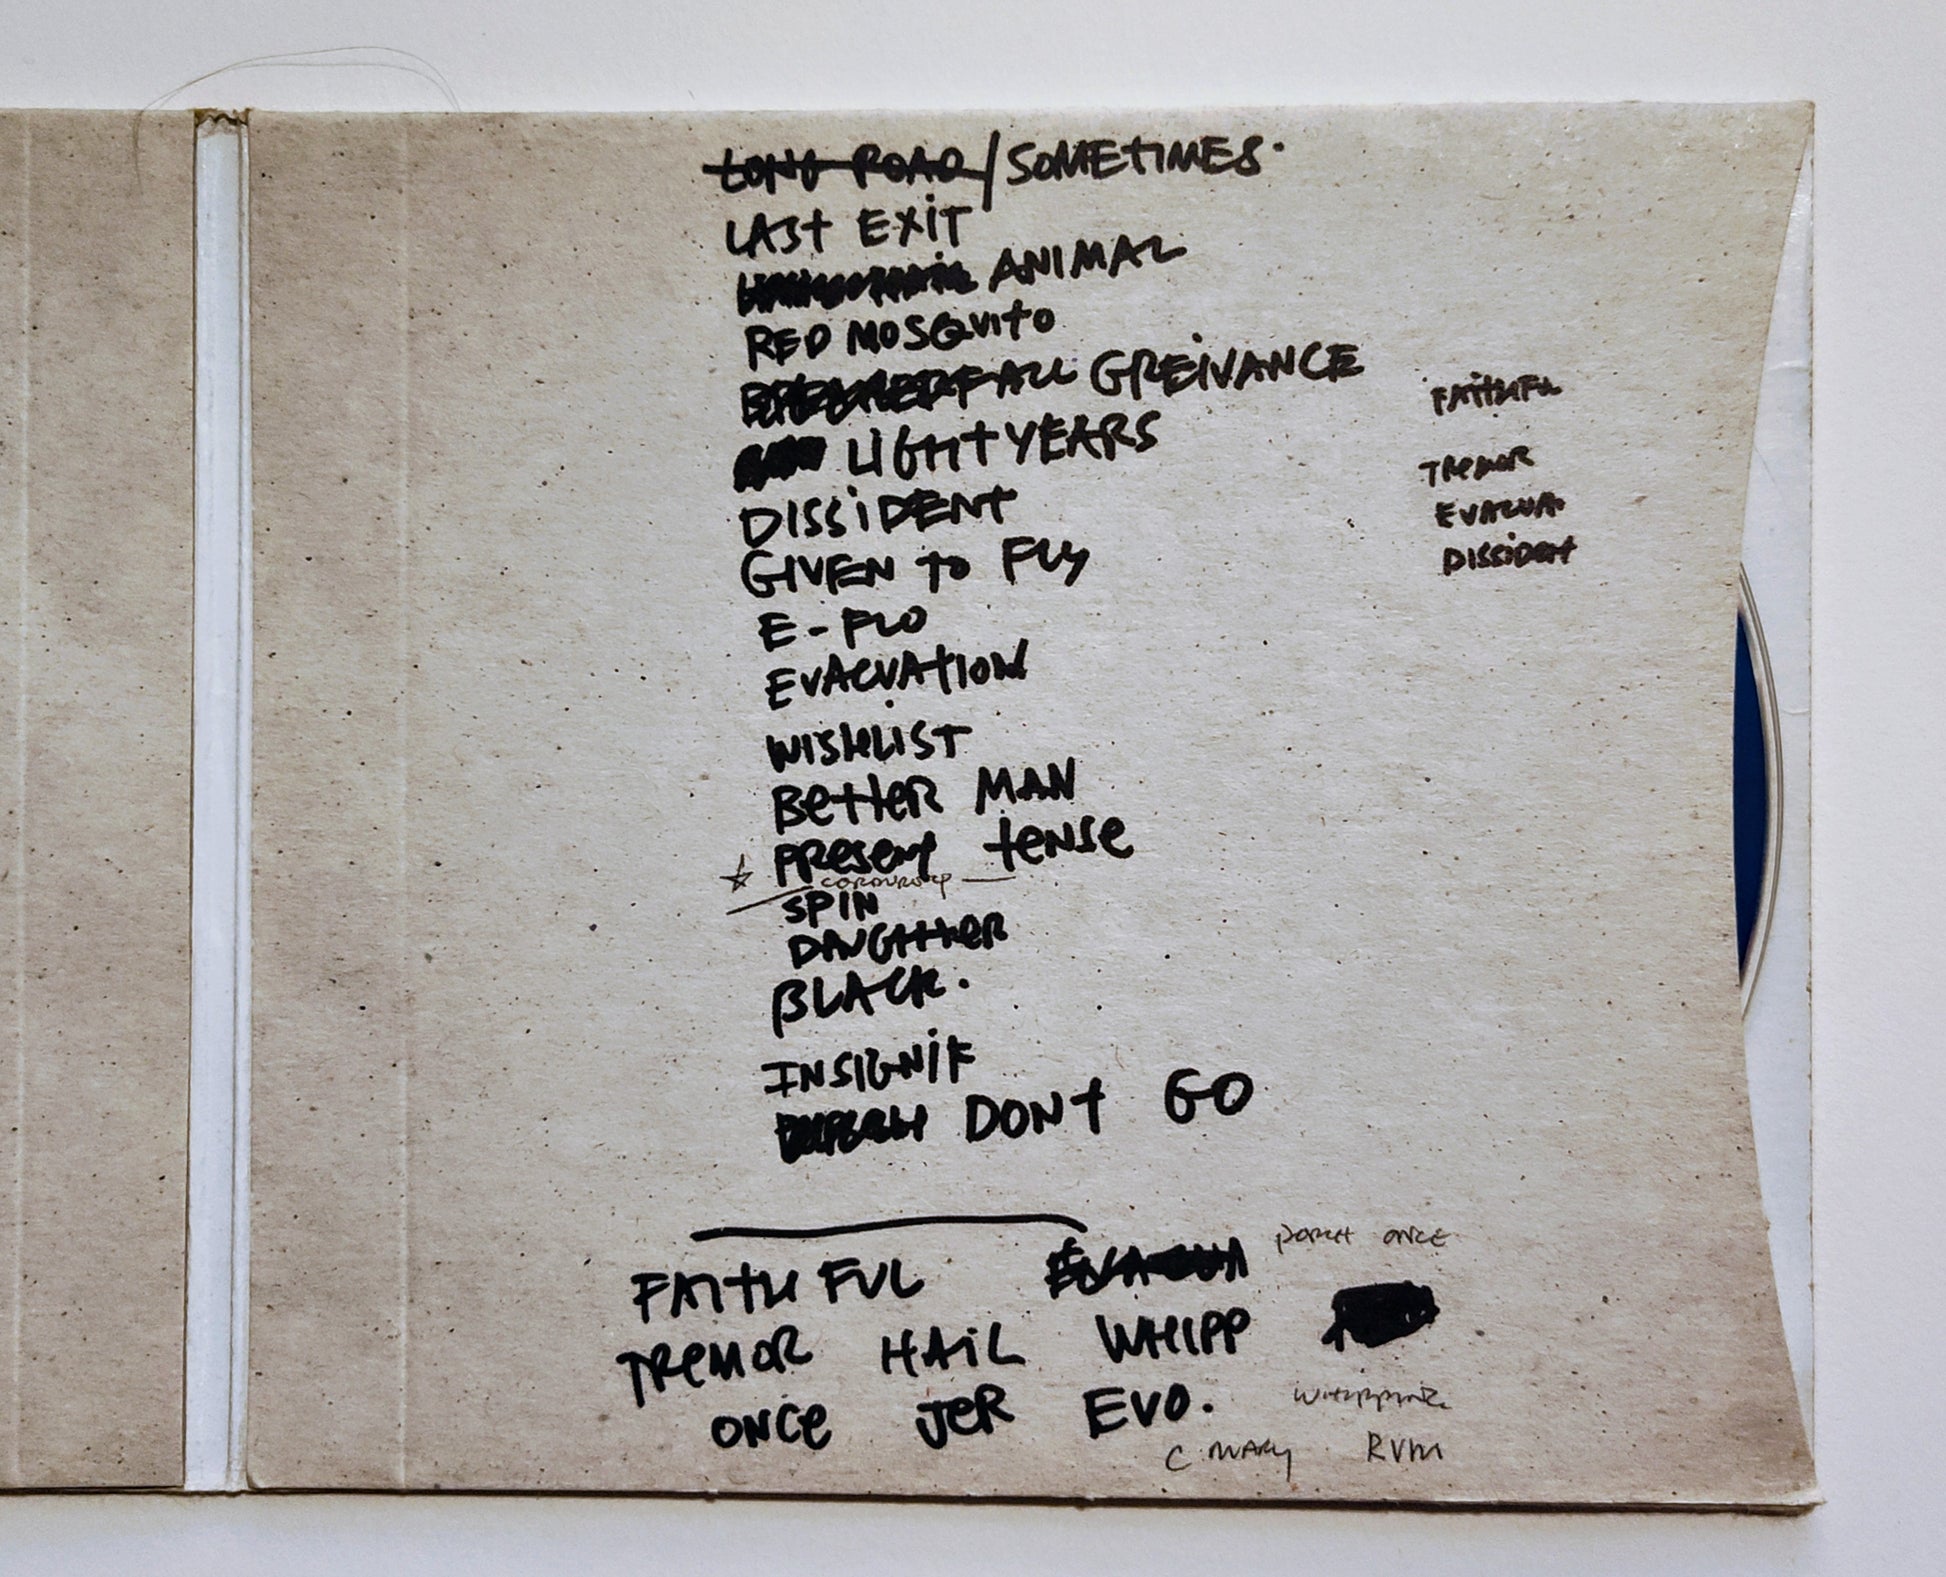 LONG ROAD / SOMETIMES.
LAST EXIT
ANIMAL
RED MOSQUITO
FALL GREIVANCE
LIGHTYEARS
DISSIDENT
GIVEN TO FLY
E-FLO
EVACUATION
WISHLIST
BETTER MAN
PRESENT TENSE
CORDUROY
SPIN
DAUGHTER
BLACK.
INSIGNIF
DON'T GO
FAITHFUL
TREMOR
EVACUA.
DISSIDENT
PORCH ONCE
FAITHFUL EVACUA
TREMOR HAIL WHIPP
ONCE JER EVO.
WHIPPING
C MARY RVM